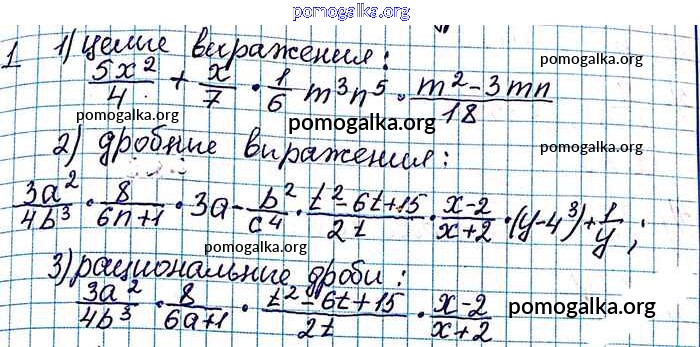 pomogalka.org
1 1) целие виражения:
5x²/4 + x/7 · 1/6 m³n⁵ · m²-3mn/18
pomogalka.org
pomogalka.org
pomogalka.org
2) дробние виражения:
pomogalka.org
3a²/4b³ · 8/6n+1 · 3a - b²/c⁴ · t²-6t+15/2t · x-2/x+2 · (y-4³)+1/y;
pomogalka.org
3) рациональние дроби:
3a²/4b³ · 8/6a+1 · t²-6t+15/2t · x-2/x+2
pomogalka.org